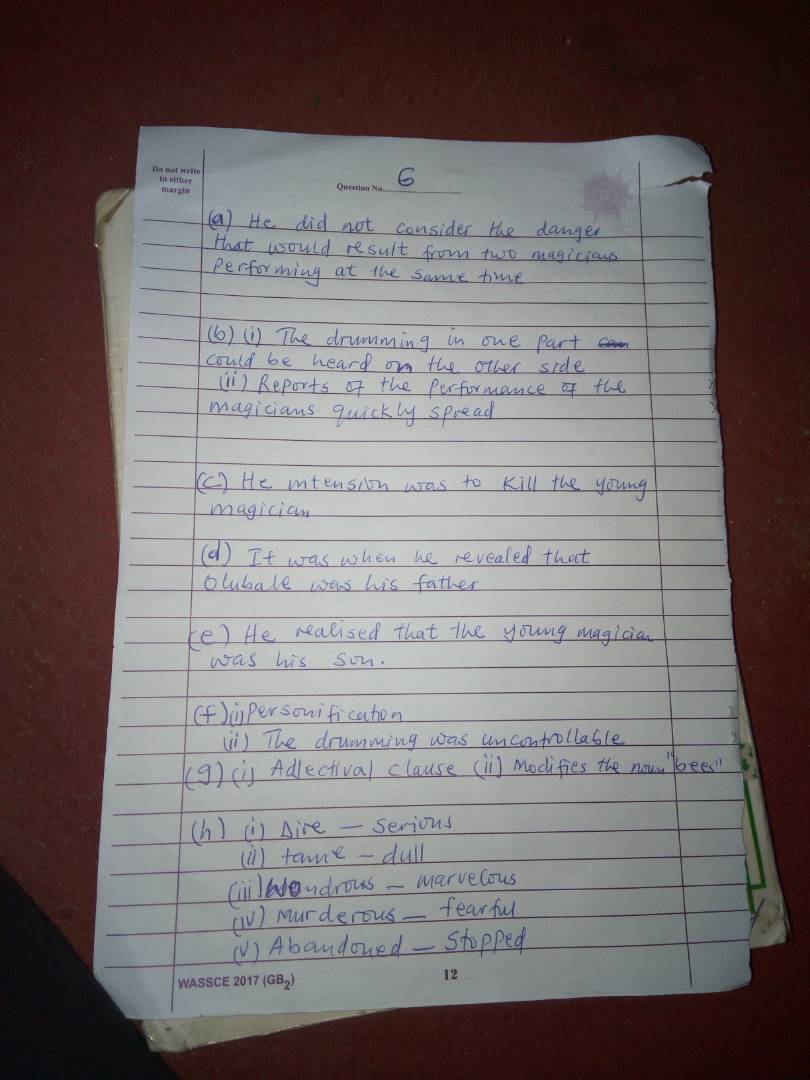 Do not write
in either
margin
Question No. 6
(a) He did not consider the danger
that would result from two magicians
performing at the same time
(b) (i) The drumming in one part can
could be heard on the other side
(ii) Reports of the performance of the
magicians quickly spread
(c) He intension was to kill the young
magician
(d) It was when he revealed that
Olubale was his father
(e) He realised that the young magician
was his son.
(f) (i) Personification
(ii) The drumming was uncontrollable
(g) (i) Adjectival clause (ii) Modifies the noun "bees"
(h) (i) Dire — Serious
(ii) tame — dull
(iii) Wondrous — marvelous
(iv) Murderous — fearful
(v) Abandoned — Stopped
WASSCE 2017 (GB2) 12